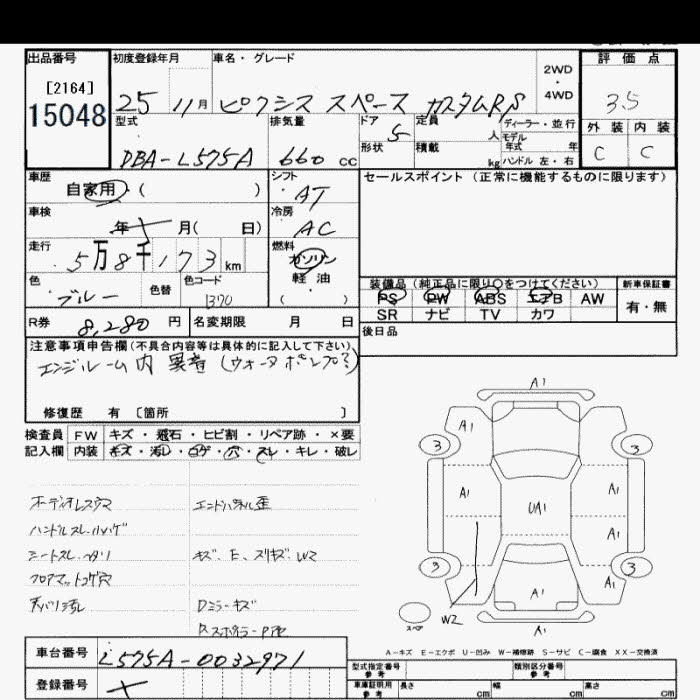 出品番号
[2164]
15048
初度登録年月
25 11月
車名・グレード
ピクシス スペース カスタムRS
2WD
・
4WD
評価点
3.5
外装 内装
C C
型式
DBA-L575A
排気量
660 cc
ドア
5
形状
定員
人
積載
kg
ディーラー・並行
モデル
年式 年
ハンドル 左・右
車歴
自家用・( )
シフト
AT
セールスポイント (正常に機能するものに限ります)
車検
年 月( 日)
冷房
AC
走行
5万8千173 km
燃料
ガソリン
軽油
( )
色
ブルー
色替
色コード
装備品 (純正品に限り○をつけてください)
新車保証書
PS PW ABS エアB AW
SR ナビ TV カワ
有・無
R券 8,280 円
名変期限 月 日
後日品
注意事項申告欄(不具合内容等は具体的に記入して下さい)
エンジンルーム内 異音 (ウォーターポンプ?)
修復歴 有 〔箇所 〕
検査員
記入欄
FW キズ・飛石・ヒビ割・リペア跡・×要
内装 キズ・汚れ・コゲ・穴・スレ・キレ・破レ
オーディオレスワク
エンドパネル歪
ハンドルスレ・ハゲ
シートスレ・ヘタリ
キズ、E、スリキズ、W2
フロアマットコゲ穴
天バリ汚れ
Dミラーキズ
A1
A1
3
3
A1
A1
UA1
A1
3
3
A1
A1
W2
スペア
A1
A-キズ E-エクボ U-凹み W-補修跡 S-サビ C-腐食 XX-交換済
車台番号 L575A-0032971
登録番号
型式指定番号
参考
類別区分番号
参考
車庫証明用
参考
長さ cm 幅 cm 高さ cm